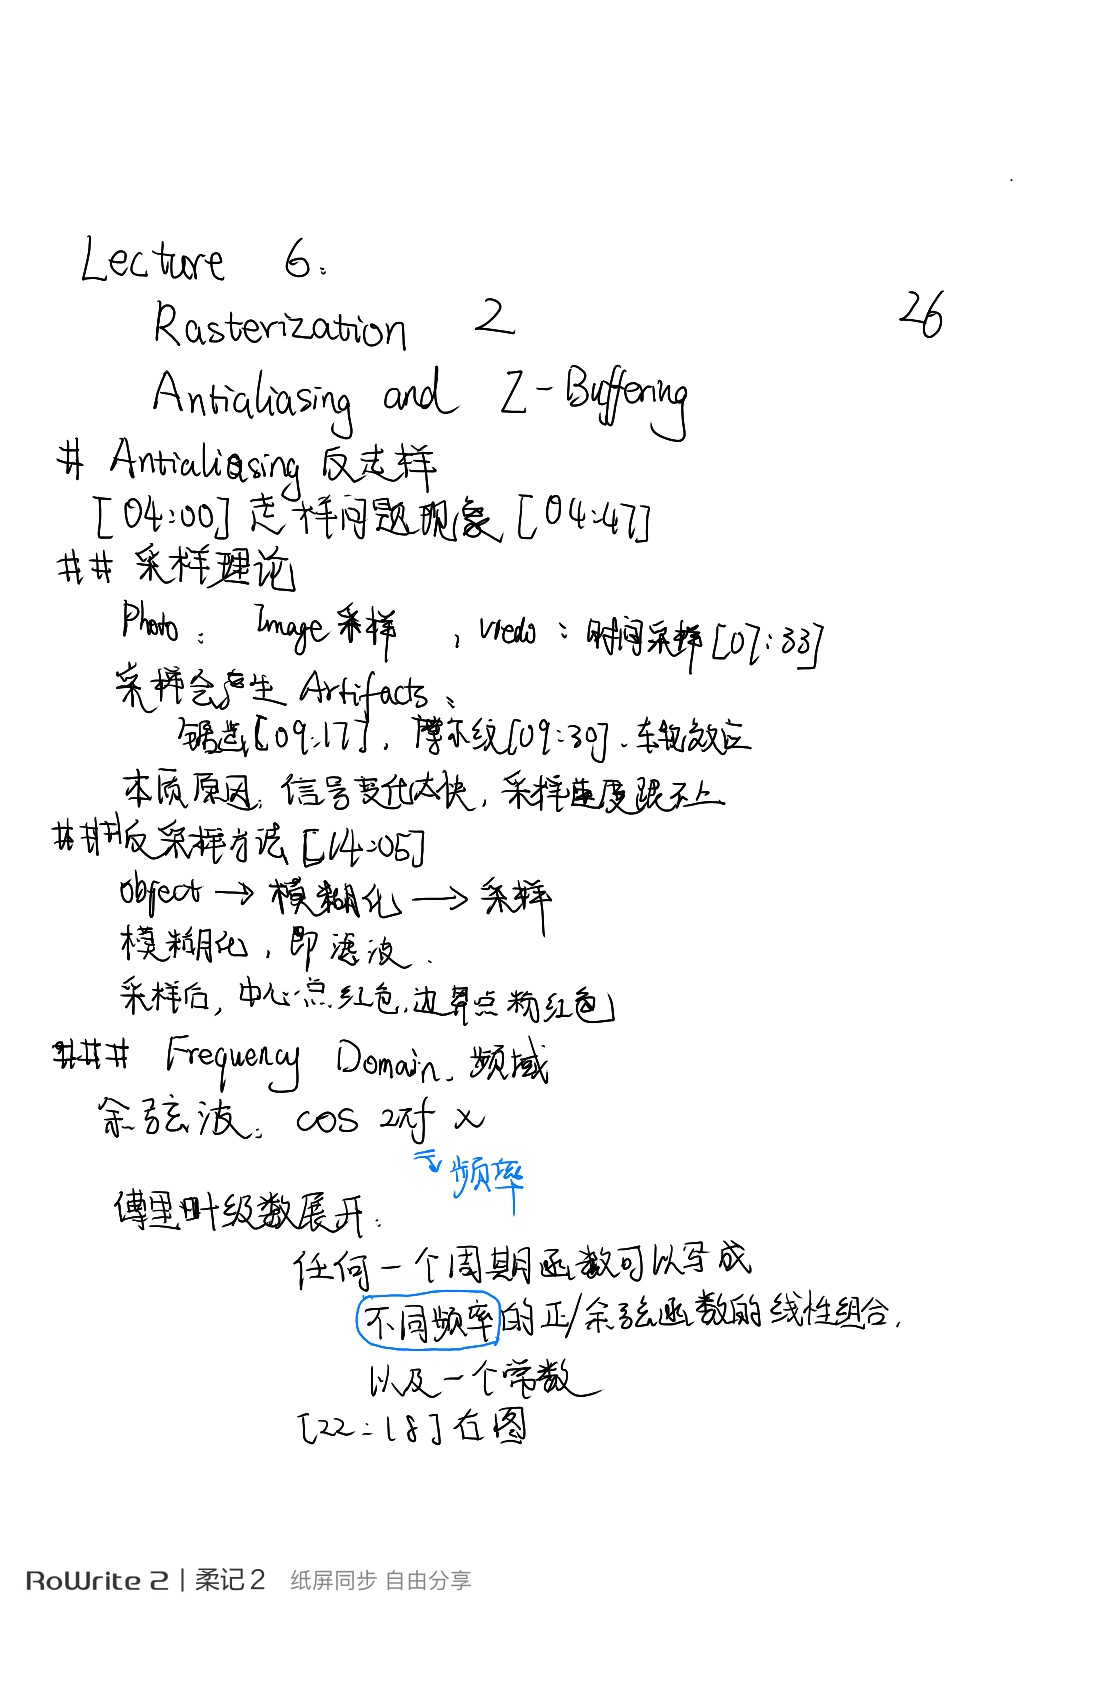 Lecture 6:
Rasterization 2
26
Antialiasing and Z-Buffering
# Antialiasing 反走样
[04:00] 走样问题现象 [04:47]
## 采样理论
Photo: Image采样, Viedo: 时间采样 [07:33]
采样会产生 Artifacts:
锯齿[09:17], 摩尔纹[09:30]、车轮效应
本质原因: 信号变化太快, 采样速度跟不上
###反采样方法 [14:05]
object → 模糊化 → 采样
模糊化, 即滤波.
采样后, 中心点红色, 边界点粉红色
### Frequency Domain. 频域
余弦波: cos 2πf x
频率
傅里叶级数展开:
任何一个周期函数可以写成
不同频率的正/余弦函数的线性组合.
以及一个常数
[22:18] 右图
RoWrite 2 | 柔记 2 纸屏同步 自由分享